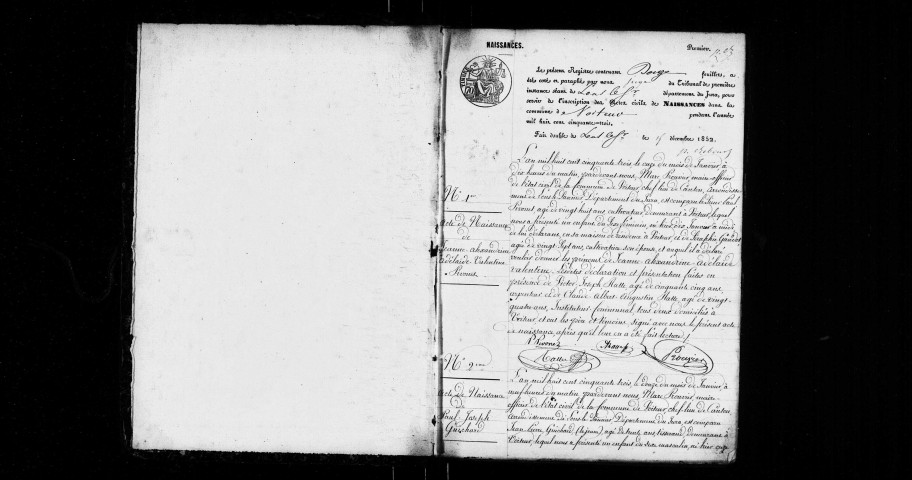 NAISSANCES.
Premier.
Le présent Registre contenant Douze feuillets, a
été coté et paraphé par nous Juge du Tribunal de première
instance séant de Lons le S.r département du Jura, pour
servir de l'inscription des Actes civils de NAISSANCES dans la
commune de Voiteur pendant l'année
mil huit cent cinquante-trois.
Fait double de Lons le S.r le 15 décembre 1852.
N.o 1.er
Acte de Naissance
de
Jeanne Alexandrine
Adélaïde Valentine
L'an mil huit cent cinquante trois, le onze du mois de Janvier, à
dix heures du matin, pardevant nous, Marc Prouvier, maire officier
de l'état civil de la Commune de Voiteur, chef lieu de Canton, arrondisse-
ment de Lons le Saunier, Département du Jura, est comparu le sieur Paul
agé de vingt huit ans, cultivateur demeurant à Voiteur, lequel
nous a présenté un enfant du sexe féminin, né hier, dix Janvier à midi
de lui déclarant, en sa maison de demeure à Voiteur, et de Séraphie
agée de vingt sept ans, cultivatrice son épouse, et auquel il a déclaré
vouloir donner les prénoms de Jeanne Alexandrine Adélaïde
Valentine. Lesdites déclaration et présentation faites en
présence de Victor Joseph agé de cinquante cinq ans,
et de Claude Albert Augustin agé de vingt-
quatre ans, Instituteur communal, tous deux domiciliés à
Voiteur, et ont les père et témoins, signé avec nous le présent acte
de naissance, après qu'il leur en a été fait lecture.
Prouvier
N.o 2.me
Acte de Naissance
de
Paul Joseph
Guichard
L'an mil huit cent cinquante trois, le douze du mois de Janvier, à
neuf heures du matin, pardevant nous, Marc Prouvier, maire
officier de l'état civil de la Commune de Voiteur, chef lieu de Canton,
arrondissement de Lons le Saunier, Département du Jura, est comparu
Jean Guichard agé de trente ans, tisserand, demeurant à
Voiteur, lequel nous a présenté un enfant du sexe masculin, né hier onze